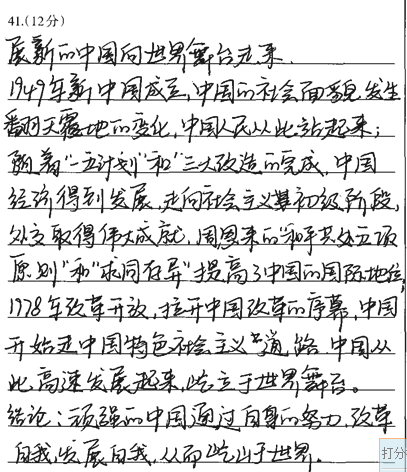 41.(12分)
展新的中国向世界舞台走来.
1949年新中国成立,中国的社会面貌发生
翻天覆地的变化,中国人民从此站起来;
随着"一五计划"和"三大改造的完成,中国
经济得到发展,走向社会主义初级阶段,
外交取得伟大成就,周恩来的"和平共处五项
原则"和"求同存异"提高了中国的国际地位,
1978年改革开放,拉开中国改革的序幕,中国
开始走中国特色社会主义道路.中国从
此高速发展起来,屹立于世界舞台。
结论:顽强的中国通过自身的努力,改革
自我,发展自我,从而屹立于世界.
打分